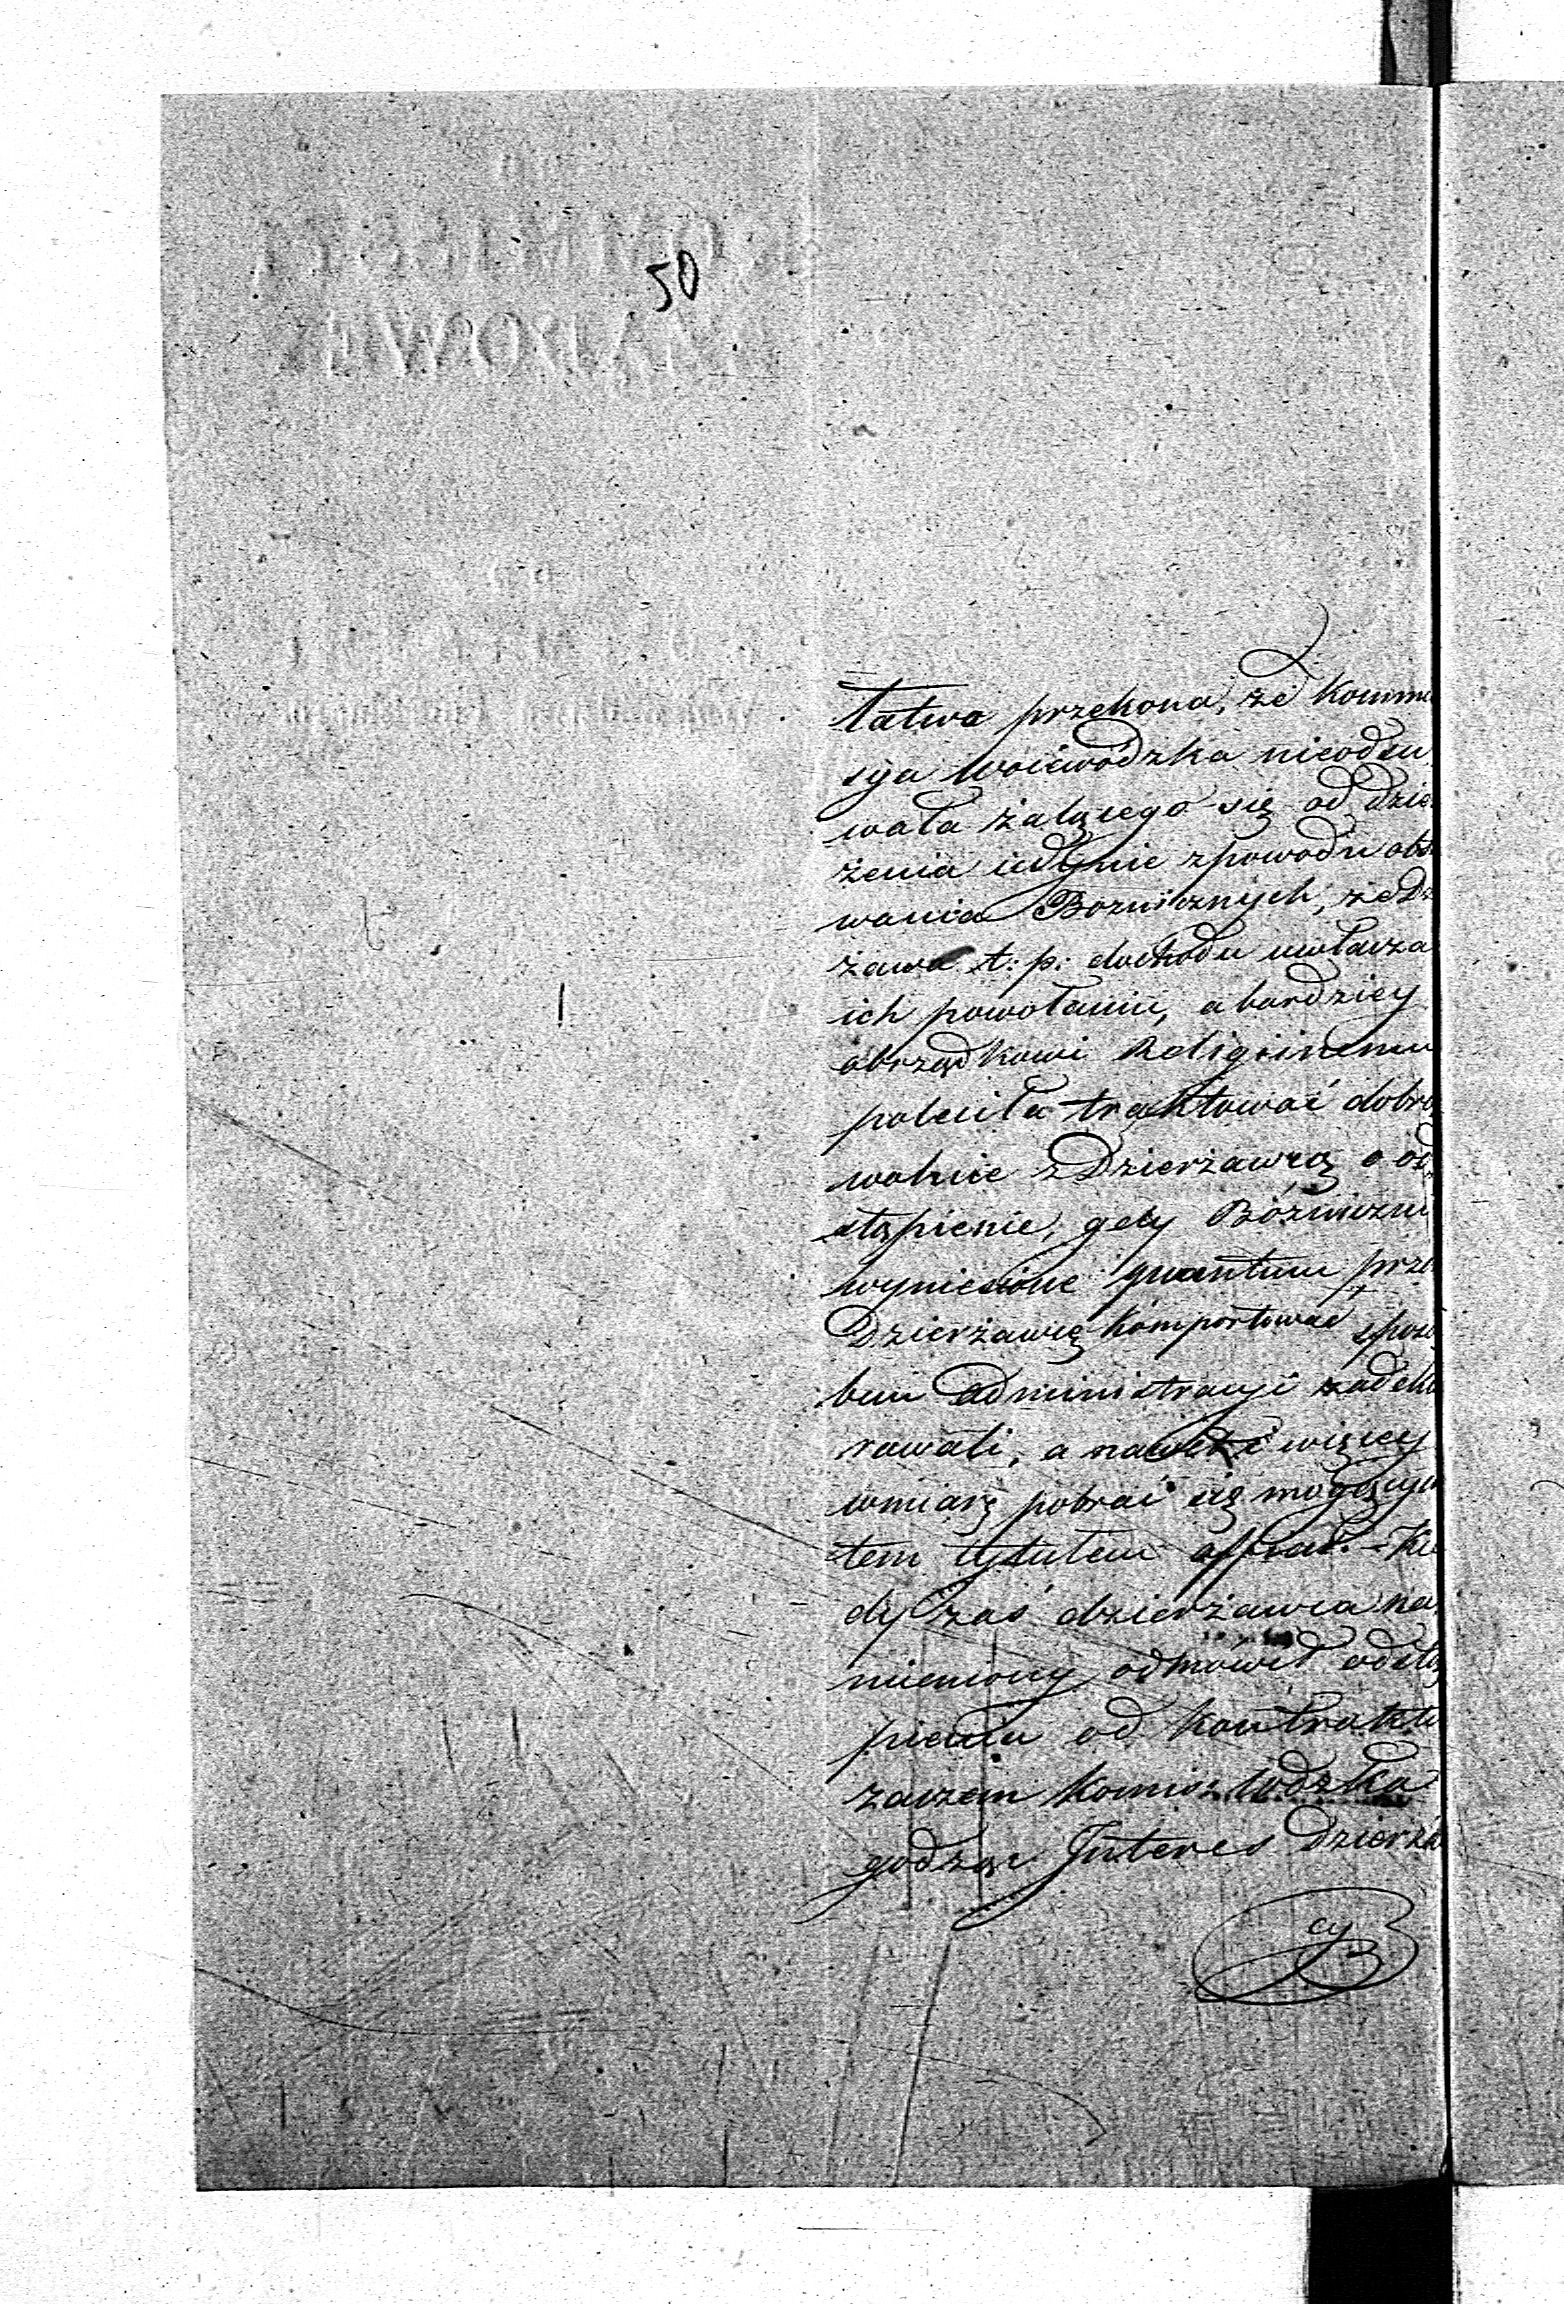 50
łatwo przekona, że Kommi
syia Woiewódzka nieodsu
wała żalącego się od dzier
żenia iedynie zpowodu obst
wania Boznicznych, że Dz
żawa t: p: dochodu uwłacza
ich powołaniu, a bardziey
obrządkowi Religiinemu
poleciła traktować dobro
wolnie z Dzierżawcą o od
stąpienie, gdy Bóźniczni
wyniesione quantum prze
Dzierżawcę komportować sposo
bem administracyi zadekl
rowali, a nawet i więcey
wmiarę pobrać się mogących
tem tytułem opłat. - Kie
dy zaś dzierżawca na
mieniony odmówił odstą
pienia od kontraktu
zaczem Kommis: Wdzka
godząc Interes Dzierża
cy